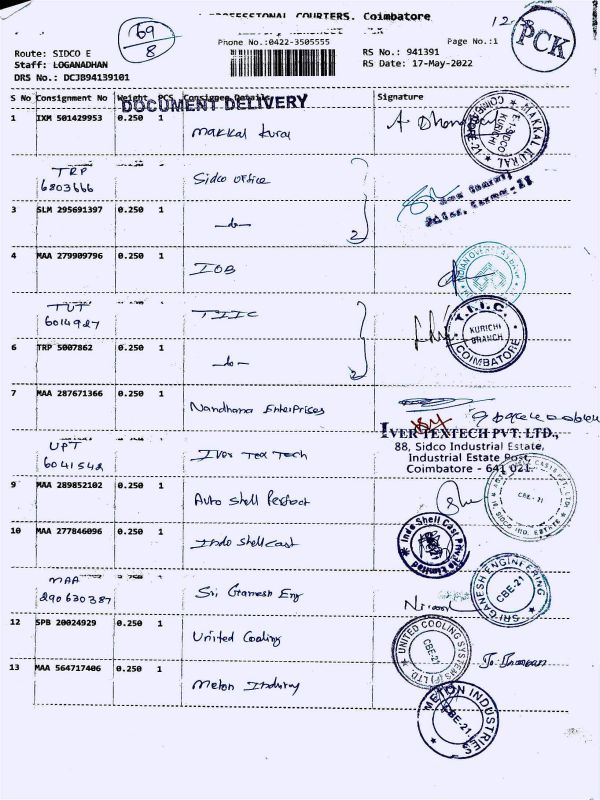 PROFESSIONAL COURIERS. Coimbatore
69
8
Phone No.:0422-3505555
Page No.:1
PCK
Route: SIDCO E
Staff: LOGANADHAN
DRS No.: DCJB94139101
RS No.: 941391
RS Date: 17-May-2022
S No Consignment No Weight PCS Consignee Details Signature
DOCUMENT DELIVERY
1 IXM 501429953 0.250 1 Makkal Kural
MAKKAL KURAL
E-1-SIDCO
KURICHI
TRP
6803666 Sidco office
3 SLM 295691397 0.250 1 -do-
2
4 MAA 279909796 0.250 1 IOB
INDIAN OVERSEAS BANK
TUT
6014927 TIIC
6 TRP 5007862 0.250 1 -do-
2
T.I.I.C.
KURICHI
BRANCH
COIMBATORE
7 MAA 287671366 0.250 1 Nandhana Enterprises
IVER TEXTECH PVT. LTD.,
88, Sidco Industrial Estate,
Industrial Estate Post,
Coimbatore - 641 021.
UPT
6041542 Iver Tex Tech
9 MAA 289852102 0.250 1 Auto Shell Perfect
CBE - 21
10 MAA 277846096 0.250 1 Indo Shell cast
Indo Shell Cast Private Limited
MAA
290630387 Sri Ganesh Eng
SRI GANESH ENGINEERING
CBE-21
12 SPB 20024929 0.250 1 United Cooling
UNITED COOLING SYSTEMS (P) LTD.
CBE-21
13 MAA 564717406 0.250 1 Melon Industry
MELON INDUSTRIES
CBE-21